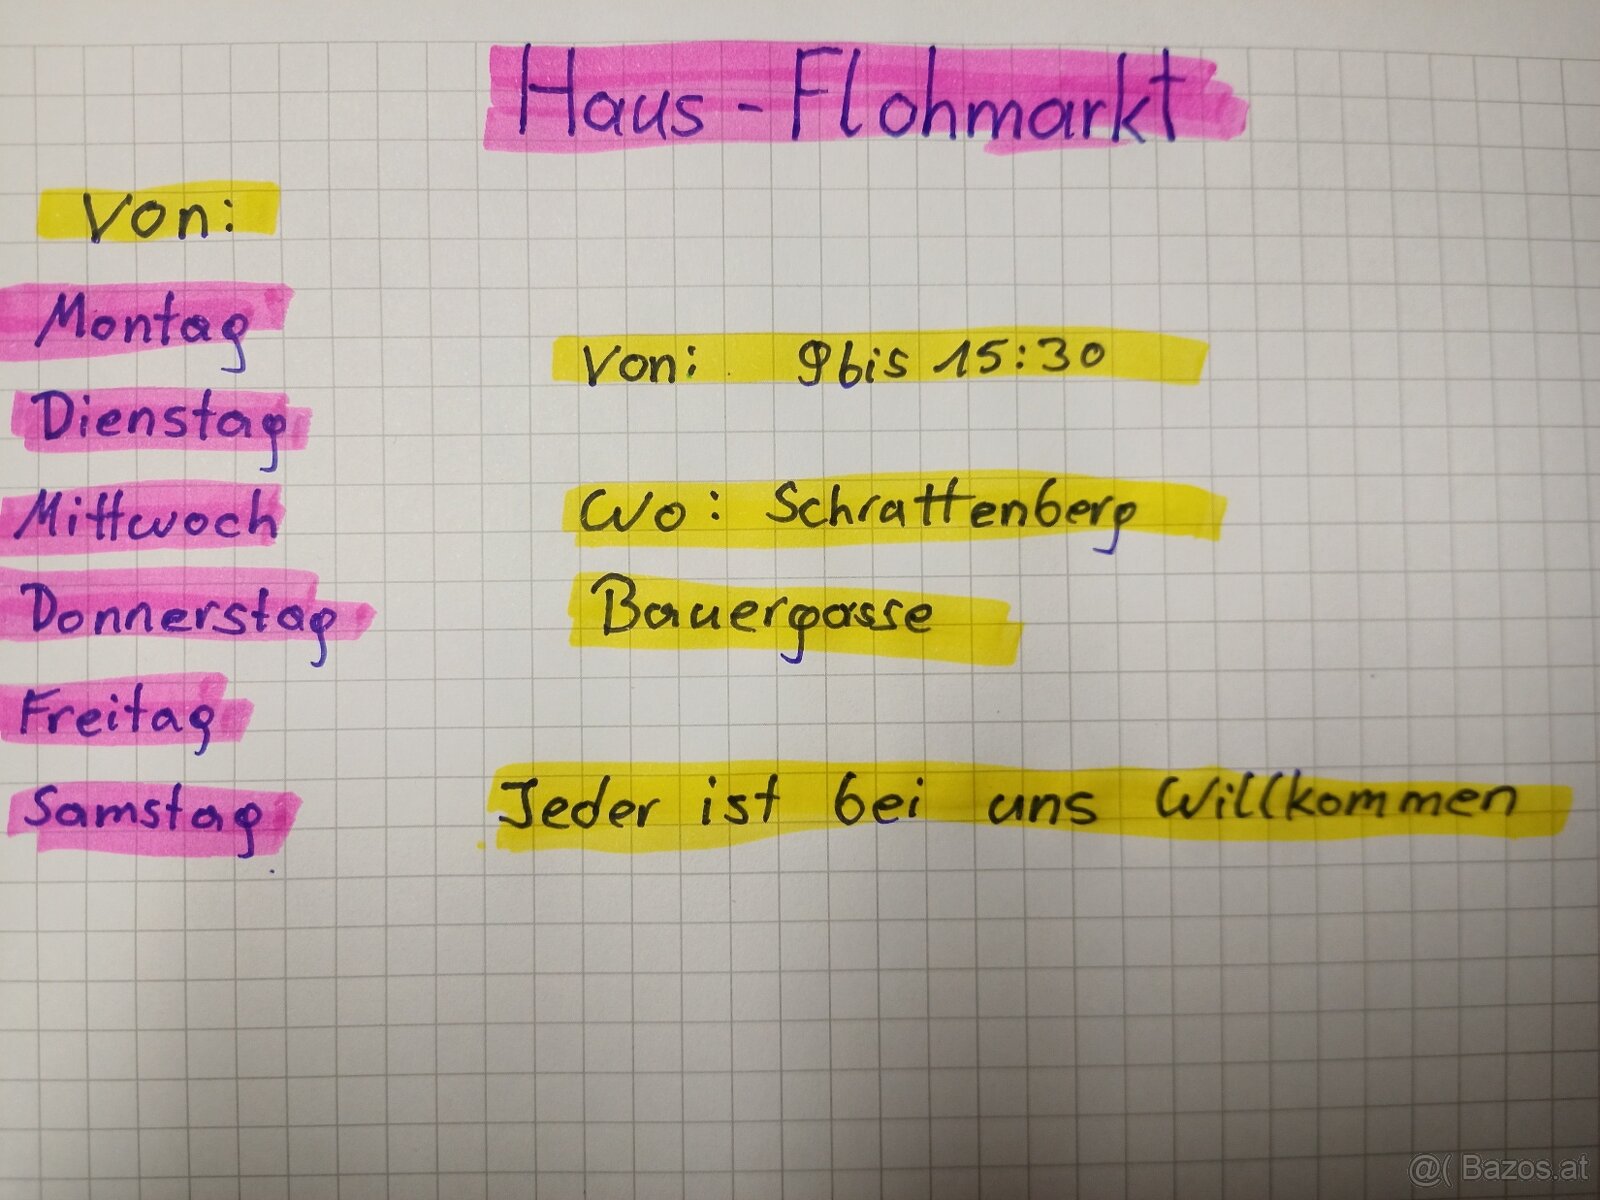 Haus - Flohmarkt
Von:
Montag
Dienstag
Mittwoch
Donnerstag
Freitag
Samstag
Von: 9 bis 15:30
Wo: Schrattenberg
Bauergasse
Jeder ist bei uns Willkommen
@( Bazos.at